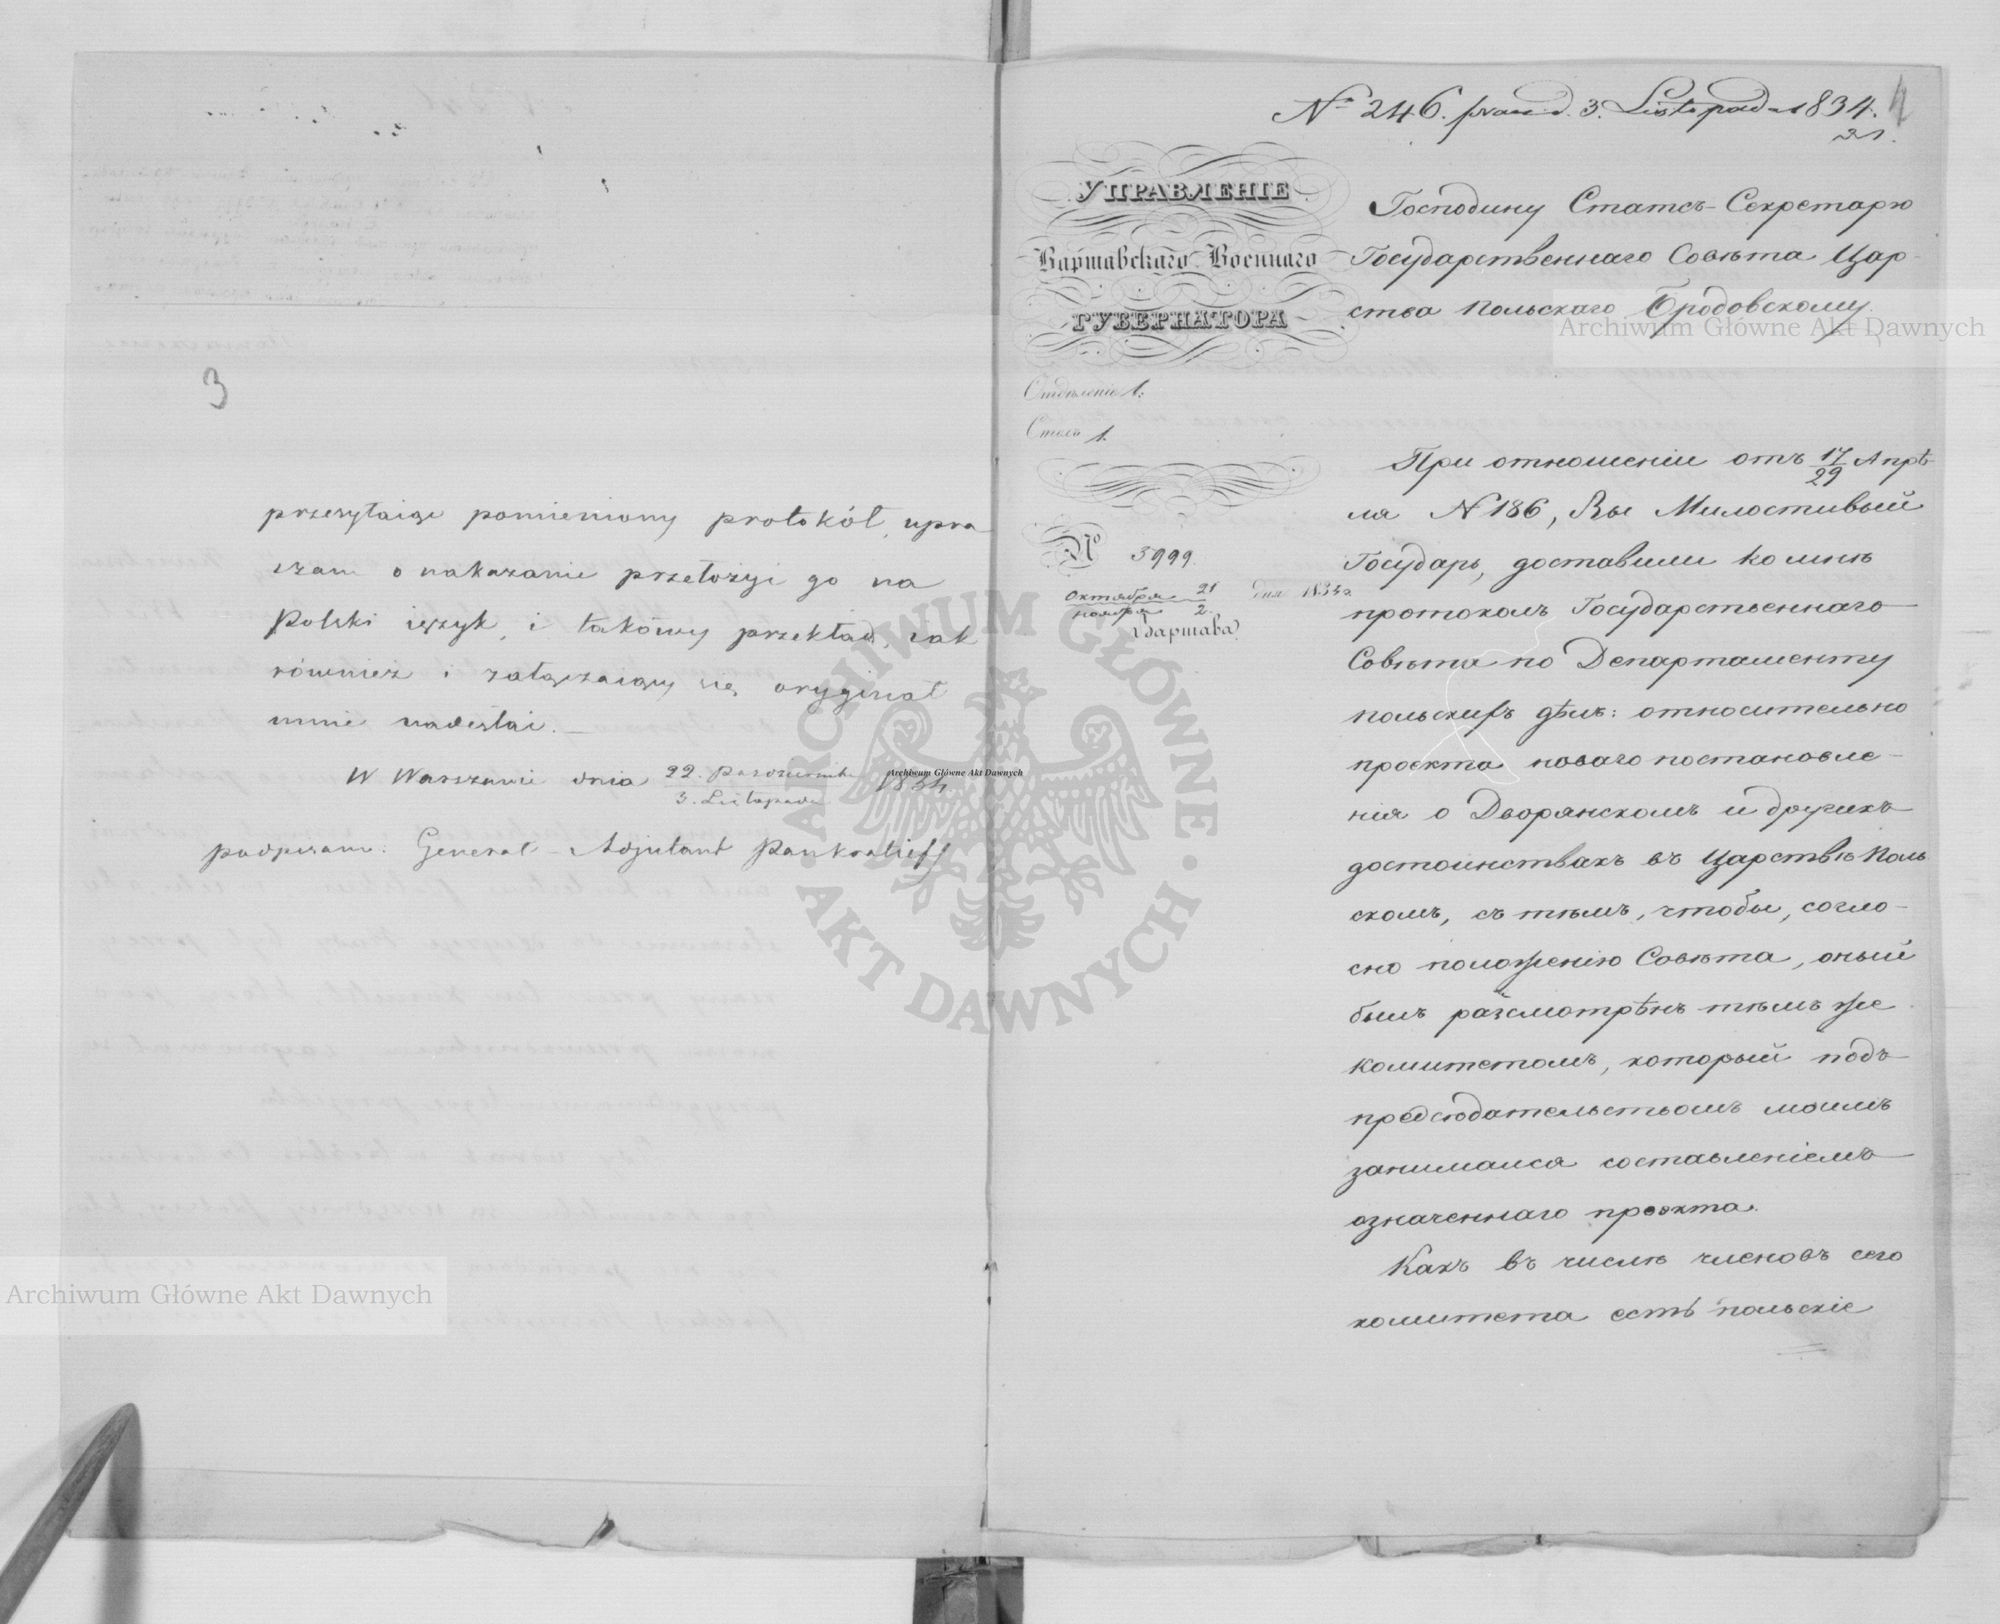 3
przesyłaiąc pomieniony protokół, upra
szam o nakazanie przełożyć go na
Polski ięzyk, i takowy przekład, iak
również i załączaiący się oryginał
mnie nadesłać.
W Warszawie dnia 22. Października / 3. Listopada 1834.
podpisano: Generał-Adjutant Pankratieff
Archiwum Główne Akt Dawnych
4
№ 246. praes. d. 3. Listopada 1834.
УПРАВЛЕНІЕ
Варшавскаго Военнаго
ГУБЕРНАТОРА
Отдѣленіе 1.
Столъ 1.
№ 3999.
Октября 21 / ноября 2. дня 1834 г.
Варшава.
Господину Статсъ-Секретарю
Государственнаго Совѣта Цар-
ства Польскаго Бродовскому.
Archiwum Główne Akt Dawnych
При отношеніи отъ 17/29 Апрѣ
ля N 186, Вы Милостивый
Государь, доставили ко мнѣ
протоколъ Государственнаго
Совѣта по Департаменту
польскихъ дѣлъ: относительно
проекта новаго постановле-
нія о Дворянскомъ и другихъ
достоинствахъ въ Царствѣ Поль
скомъ, съ тѣмъ, чтобы, согла-
сно положенію Совѣта, оный
былъ разсмотрѣнъ тѣмъ же
комитетомъ, который подъ
предсѣдательствомъ моимъ
занимался составленіемъ
означеннаго проэкта.
Какъ въ числѣ членовъ сего
комитета есть польскіе
ARCHIWUM GŁÓWNE AKT DAWNYCH
Archiwum Główne Akt Dawnych